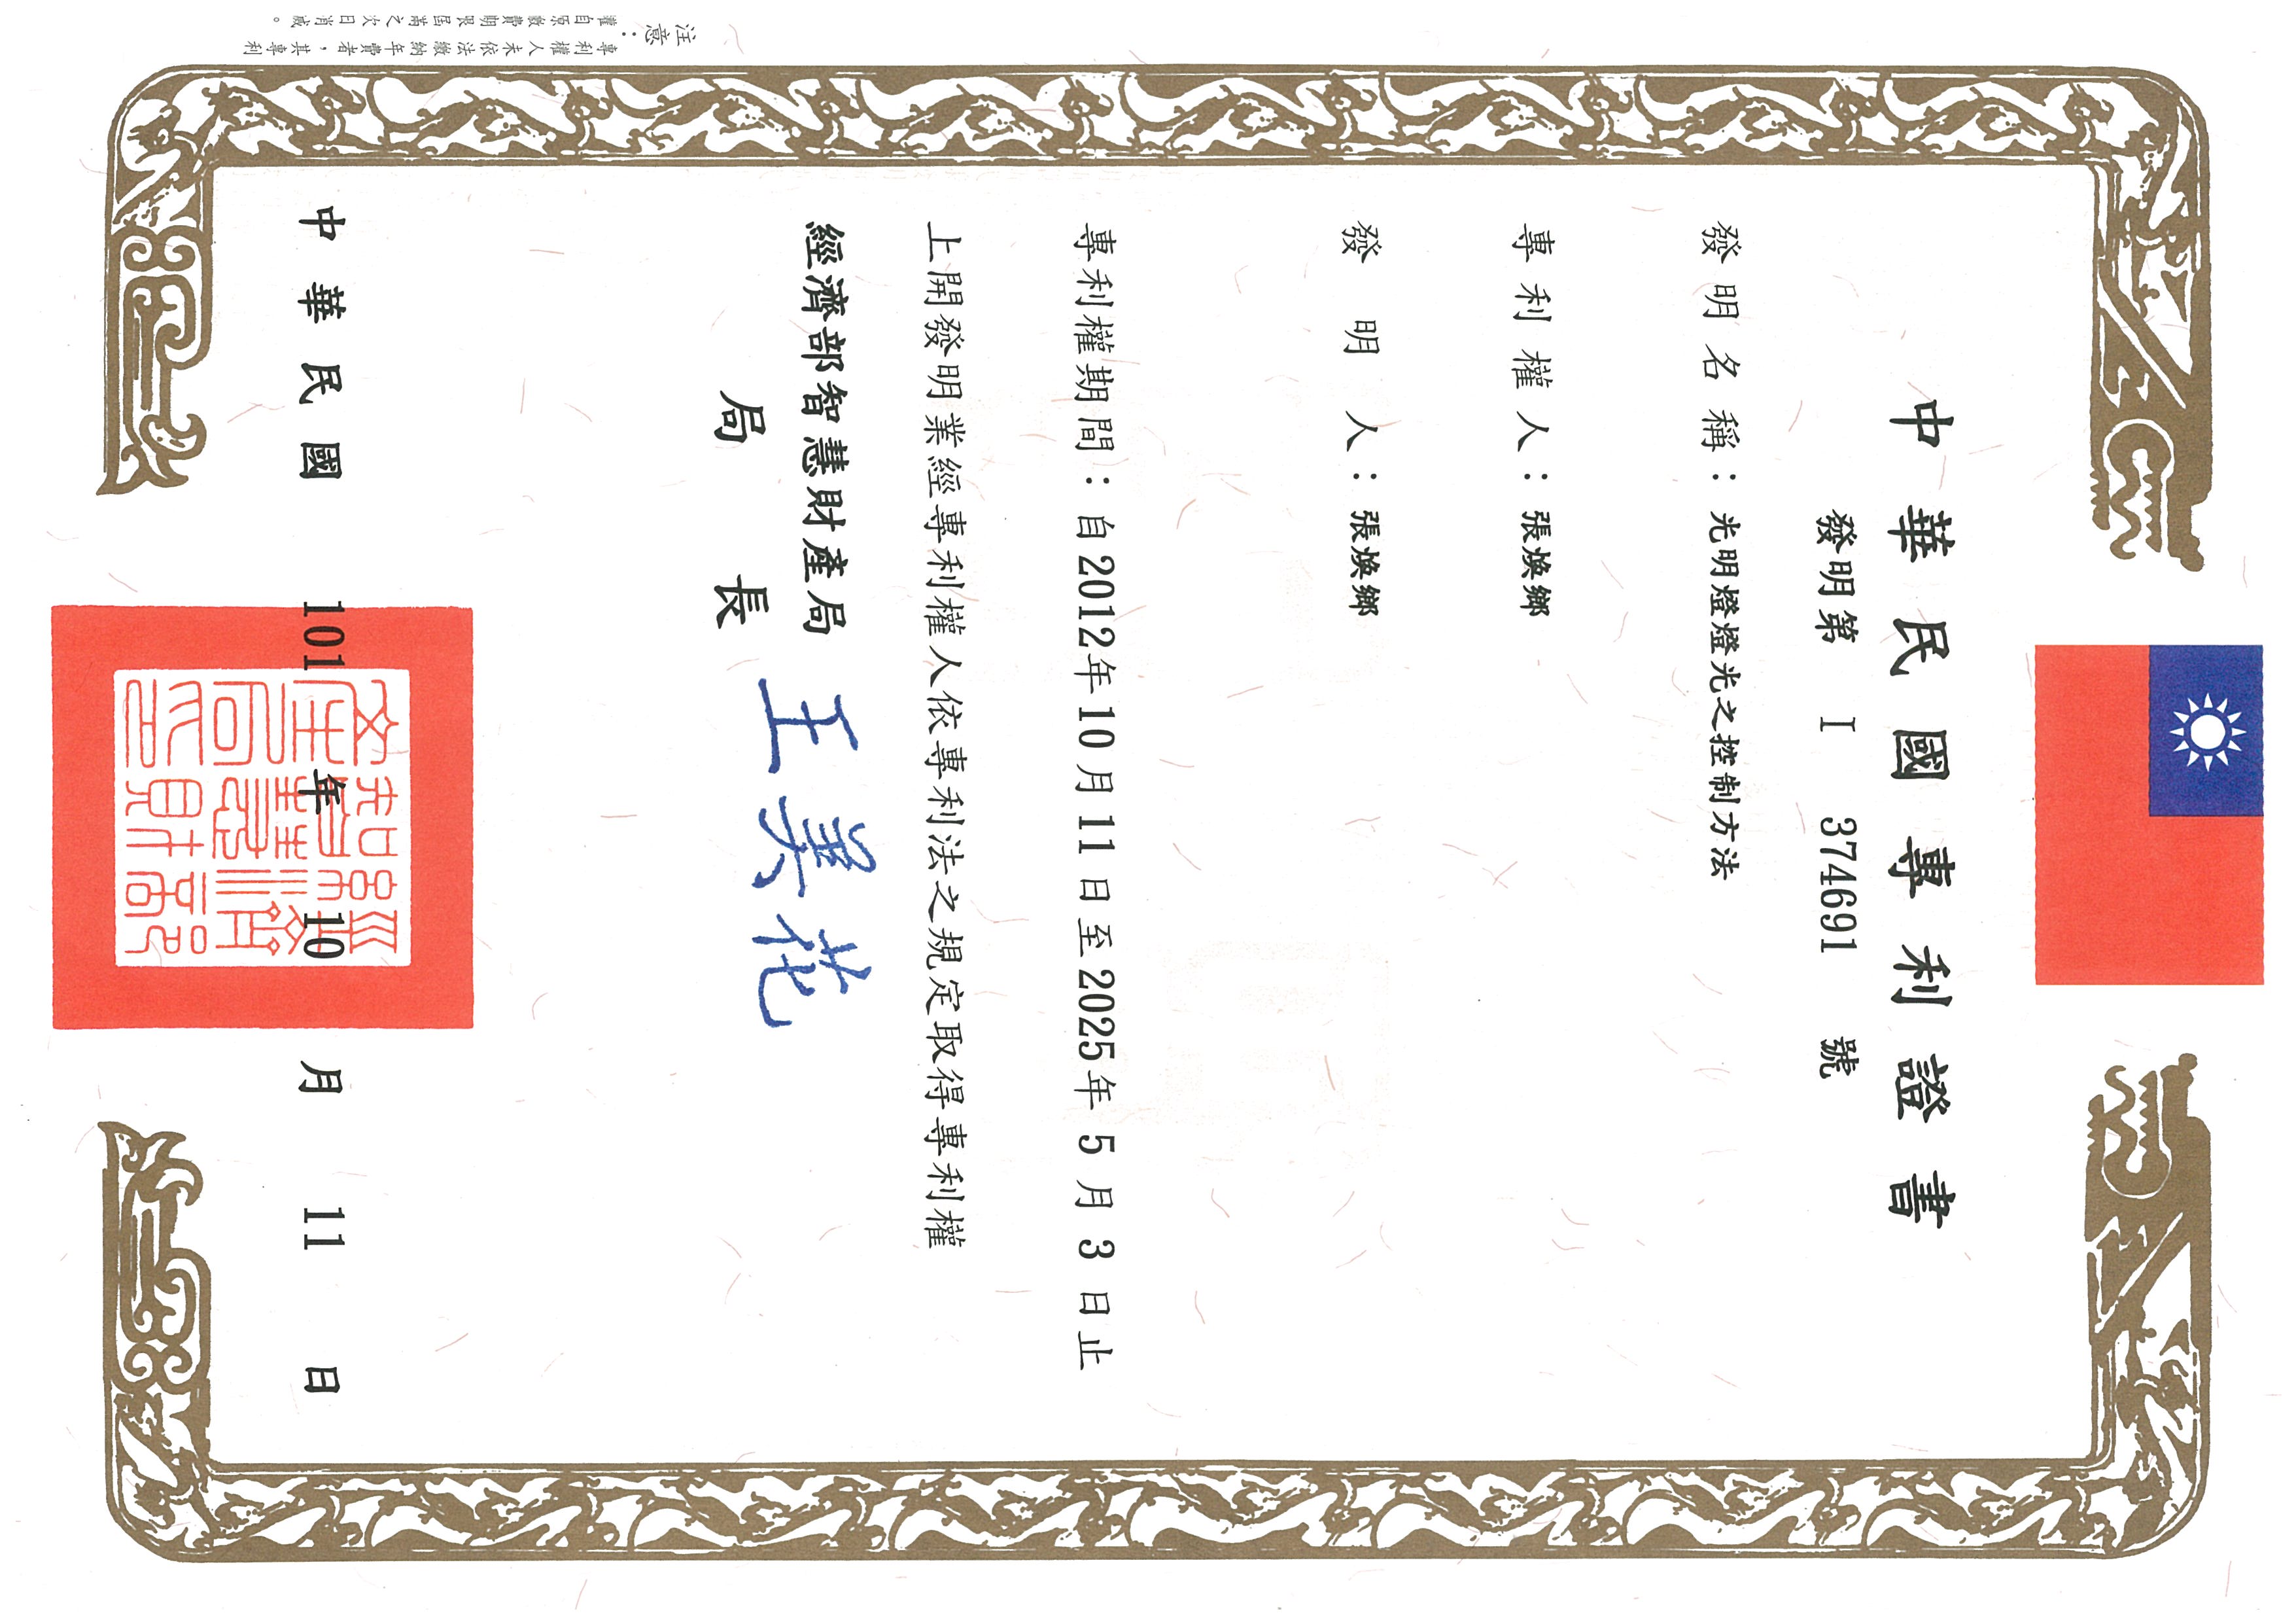 中華民國專利證書
發明第 I 374691 號
發明名稱：光明燈燈光之控制方法
專利權人：張煥鄉
發明人：張煥鄉
專利權期間：自2012年10月11日至2025年5月3日止
上開發明業經專利權人依專利法之規定取得專利權
經濟部智慧財產局
局長 王美花
中華民國 101 年 10 月 11 日
注意：
專利權人未依法繳納年費者，其專利
權自原繳費期限屆滿之次日消滅。